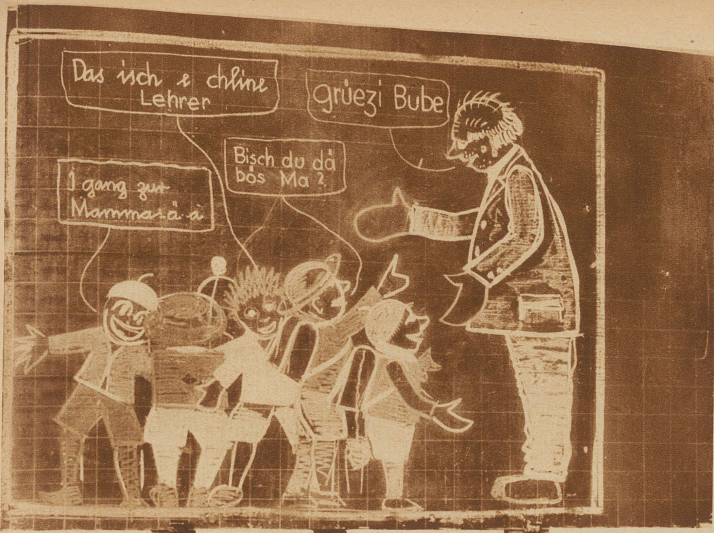 Das isch e chline
Lehrer
grüezi Bube
Bisch du dä
bös Ma?
I gang zur
Mamma-ä-ä